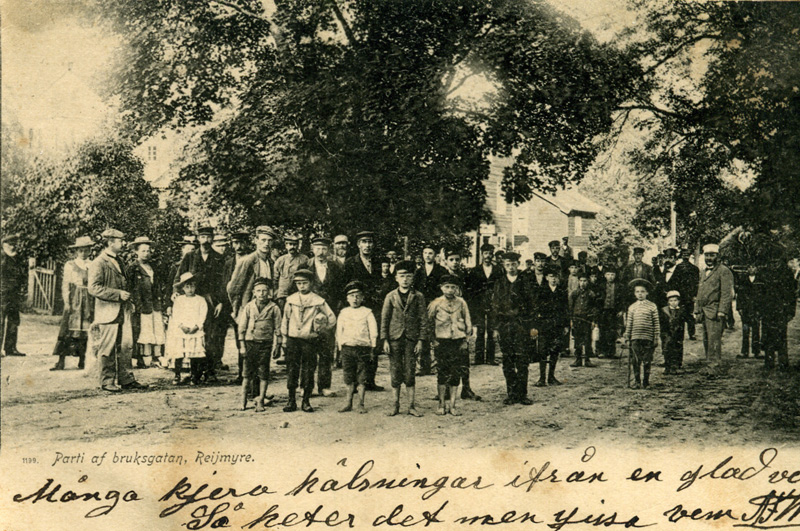 1139. Parti af bruksgatan, Reijmyre.
Många kjera hälsningar ifrån en glad
Så heter det men gissa vem